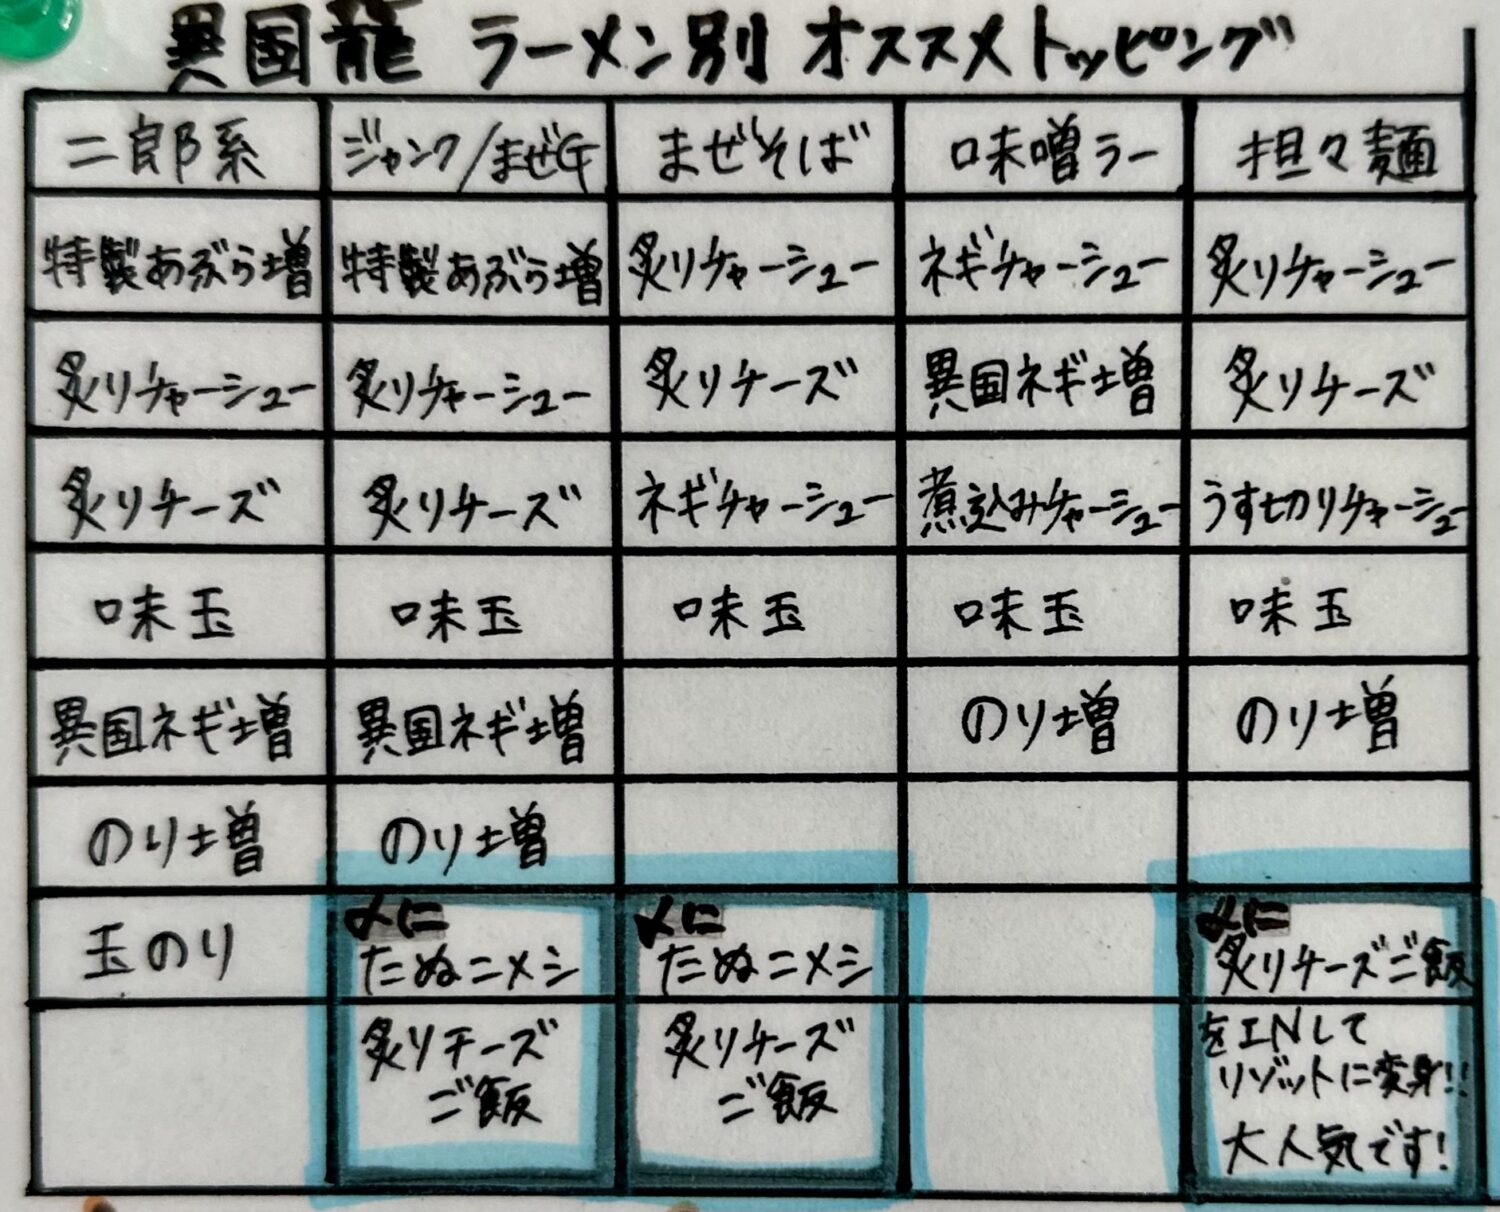 異国龍 ラーメン別 オススメトッピング
二郎系 ジャンク/まぜG まぜそば 味噌ラー 担々麺
特製あぶら増 特製あぶら増 炙りチャーシュー ネギチャーシュー 炙りチャーシュー
炙りチャーシュー 炙りチャーシュー 炙りチーズ 異国ネギ増 炙りチーズ
炙りチーズ 炙りチーズ ネギチャーシュー 煮込みチャーシュー うす切りチャーシュー
味玉 味玉 味玉 味玉 味玉
異国ネギ増 異国ネギ増 のり増 のり増
のり増 のり増
〆に 〆に 〆に
玉のり たぬニメシ たぬニメシ 炙りチーズご飯
炙りチーズ 炙りチーズ をINして
ご飯 ご飯 リゾットに変身!!
大人気です!